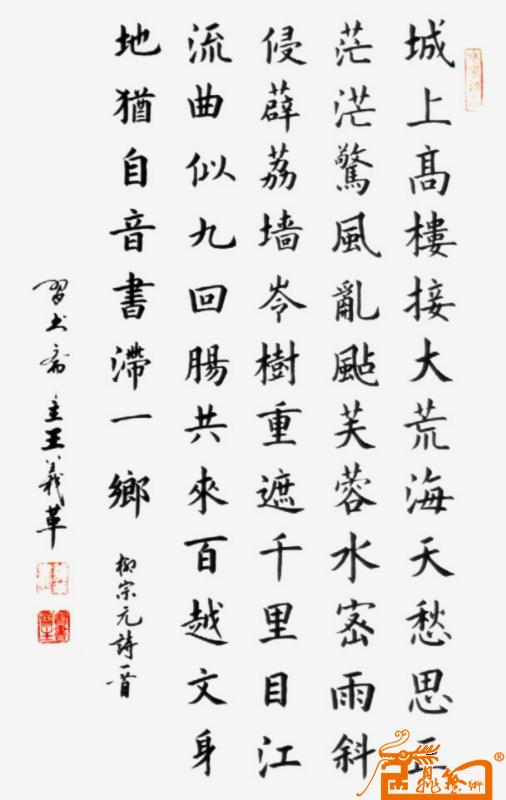 城上高樓接大荒海天愁思正
茫茫驚風亂颭芙蓉水密雨斜
侵薜荔墙岺樹重遮千里目江
流曲似九回腸共來百越文身
地猶自音書滯一鄉
柳宗元詩一首
習书斋主王義草